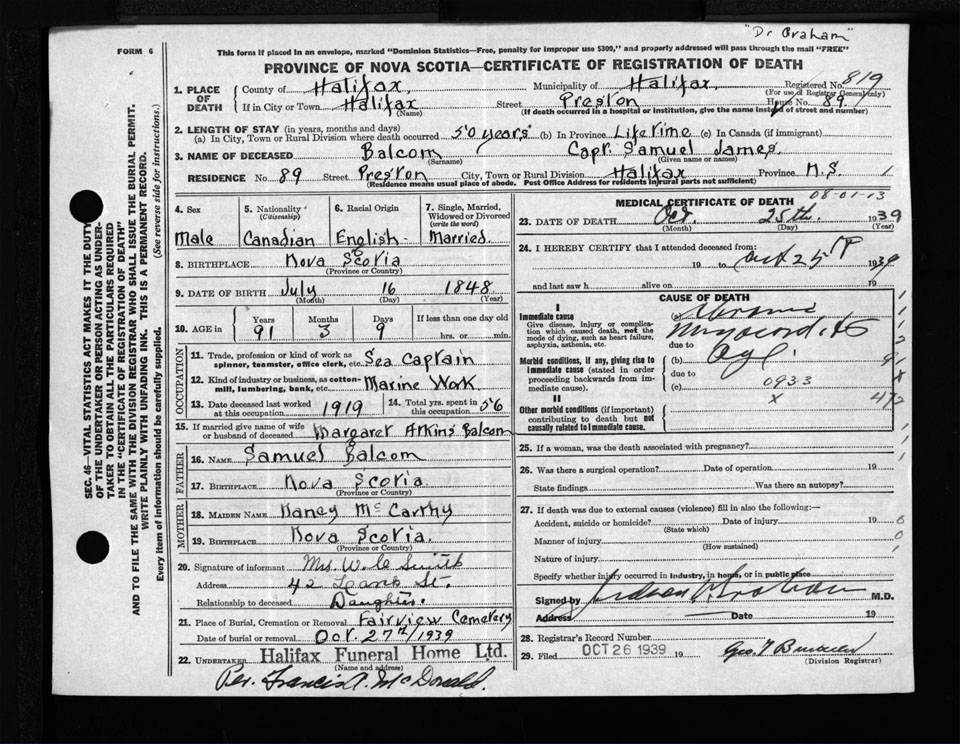 "Dr Graham"
FORM 6
This form if placed in an envelope, marked "Dominion Statistics—Free, penalty for improper use $300," and properly addressed will pass through the mail "FREE"
PROVINCE OF NOVA SCOTIA—CERTIFICATE OF REGISTRATION OF DEATH
SEC. 46—VITAL STATISTICS ACT MAKES IT THE DUTY
OF THE UNDERTAKER OR PERSON ACTING AS UNDER-
TAKER TO OBTAIN ALL THE PARTICULARS REQUIRED
IN THE "CERTIFICATE OF REGISTRATION OF DEATH"
AND TO FILE THE SAME WITH THE DIVISION REGISTRAR WHO SHALL ISSUE THE BURIAL PERMIT.
WRITE PLAINLY WITH UNFADING INK. THIS IS A PERMANENT RECORD.
Every item of information should be carefully supplied. (See reverse side for instructions.)
1. PLACE OF DEATH County of Halifax, Municipality of Halifax. Registered No. 819
(For use of Registrar General only)
If in City or Town Halifax Street Preston House No. 89
(Name) (If death occurred in a hospital or institution, give the name instead of street and number)
2. LENGTH OF STAY (in years, months and days)
(a) In City, Town or Rural Division where death occurred 50 years (b) In Province Lifetime (c) In Canada (if immigrant)
3. NAME OF DECEASED Balcom Capt. Samuel James.
(Surname) (Given name or names)
RESIDENCE No. 89 Street Preston City, Town or Rural Division Halifax Province N.S. 1
(Residence means usual place of abode. Post Office Address for residents in rural parts not sufficient)
08-01-13
4. Sex 5. Nationality (Citizenship) 6. Racial Origin 7. Single, Married, Widowed or Divorced (write the word)
Male Canadian English Married
8. BIRTHPLACE Nova Scotia
(Province or Country)
9. DATE OF BIRTH July 16 1848.
(Month) (Day) (Year)
10. AGE in Years Months Days If less than one day old
91 3 9 hrs. or min.
OCCUPATION
11. Trade, profession or kind of work as spinner, teamster, office clerk, etc. Sea Captain
12. Kind of industry or business, as cotton-mill, lumbering, bank, etc. Marine Work.
13. Date deceased last worked at this occupation 1919 14. Total yrs. spent in this occupation 56
15. If married give name of wife or husband of deceased Margaret Atkins Balcom
FATHER
16. NAME Samuel Balcom
17. BIRTHPLACE Nova Scotia
(Province or Country)
MOTHER
18. MAIDEN NAME Nancy McCarthy
19. BIRTHPLACE Nova Scotia.
(Province or Country)
20. Signature of informant Mrs. W. Smith
Address 42 St.
Relationship to deceased Daughter.
21. Place of Burial, Cremation or Removal Fairview Cemetery
Date of burial or removal Oct. 27th/1939
22. UNDERTAKER Halifax Funeral Home Ltd.
(Name and address)
Per. Francis A. McDonald.
MEDICAL CERTIFICATE OF DEATH
23. DATE OF DEATH Oct. 25th. 1939
(Month) (Day) (Year)
24. I HEREBY CERTIFY that I attended deceased from:
19 to Oct 25th 1939
and last saw h alive on 19
CAUSE OF DEATH
I
Immediate cause (a) Chronic
Give disease, injury or complication which caused death, not the mode of dying, such as heart failure, asphyxia, asthenia, etc.
Myocarditis
due to
Morbid conditions, if any, giving rise to immediate cause (stated in order proceeding backwards from immediate cause). (b) Age.
due to
(c) 0933
II x
Other morbid conditions (if important) contributing to death but not causally related to immediate cause.
25. If a woman, was the death associated with pregnancy?
26. Was there a surgical operation? Date of operation 19
State findings Was there an autopsy?
27. If death was due to external causes (violence) fill in also the following:—
Accident, suicide or homicide? Date of injury 19
(State which)
Manner of injury
(How sustained)
Nature of injury
Specify whether injury occurred in industry, in home, or in public place
Signed by Judson Graham M.D.
Address Date 19
28. Registrar's Record Number
29. Filed OCT 26 1939 19 Geo.
(Division Registrar)